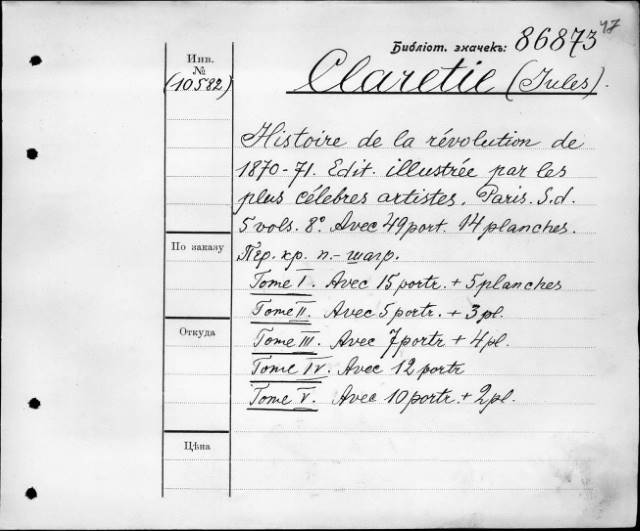 47
Библіот. значекъ: 86873
Инв.
№
(10582)
Claretie (Jules).
Histoire de la révolution de
1870-71. Edit. illustrée par les
plus célèbres artistes. Paris. S.d.
5 vols. 8° Avec 49 port. 14 planches.
Пер. кр. п.-шагр.
По заказу
Tome I. Avec 15 portr. + 5 planches
Tome II. Avec 5 portr. + 3 pl.
Откуда
Tome III. Avec 7 portr + 4 pl.
Tome IV. Avec 12 portr
Tome V. Avec 10 portr. + 2 pl.
Цѣна